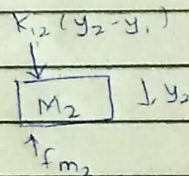 K₁₂ (y₂-y₁)
M₂
y₂
fm₂